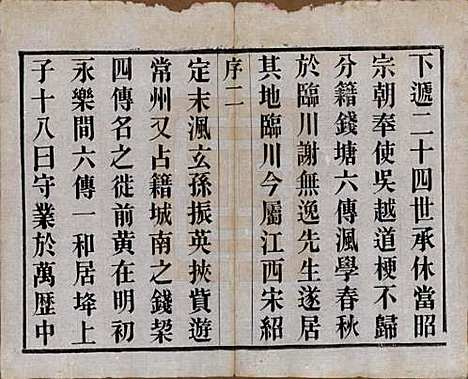 下遞二十四世承休當昭
宗朝奉使吳越道梗不歸
分籍錢塘六傳渢學春秋
於臨川謝無逸先生遂居
其地臨川今屬江西宋紹
序二
定末渢玄孫振英挾貲遊
常州又占籍城南之錢㓨
四傳名之徙前黄在明初
永樂間六傳一和居垰上
子十八曰守業於萬歷中